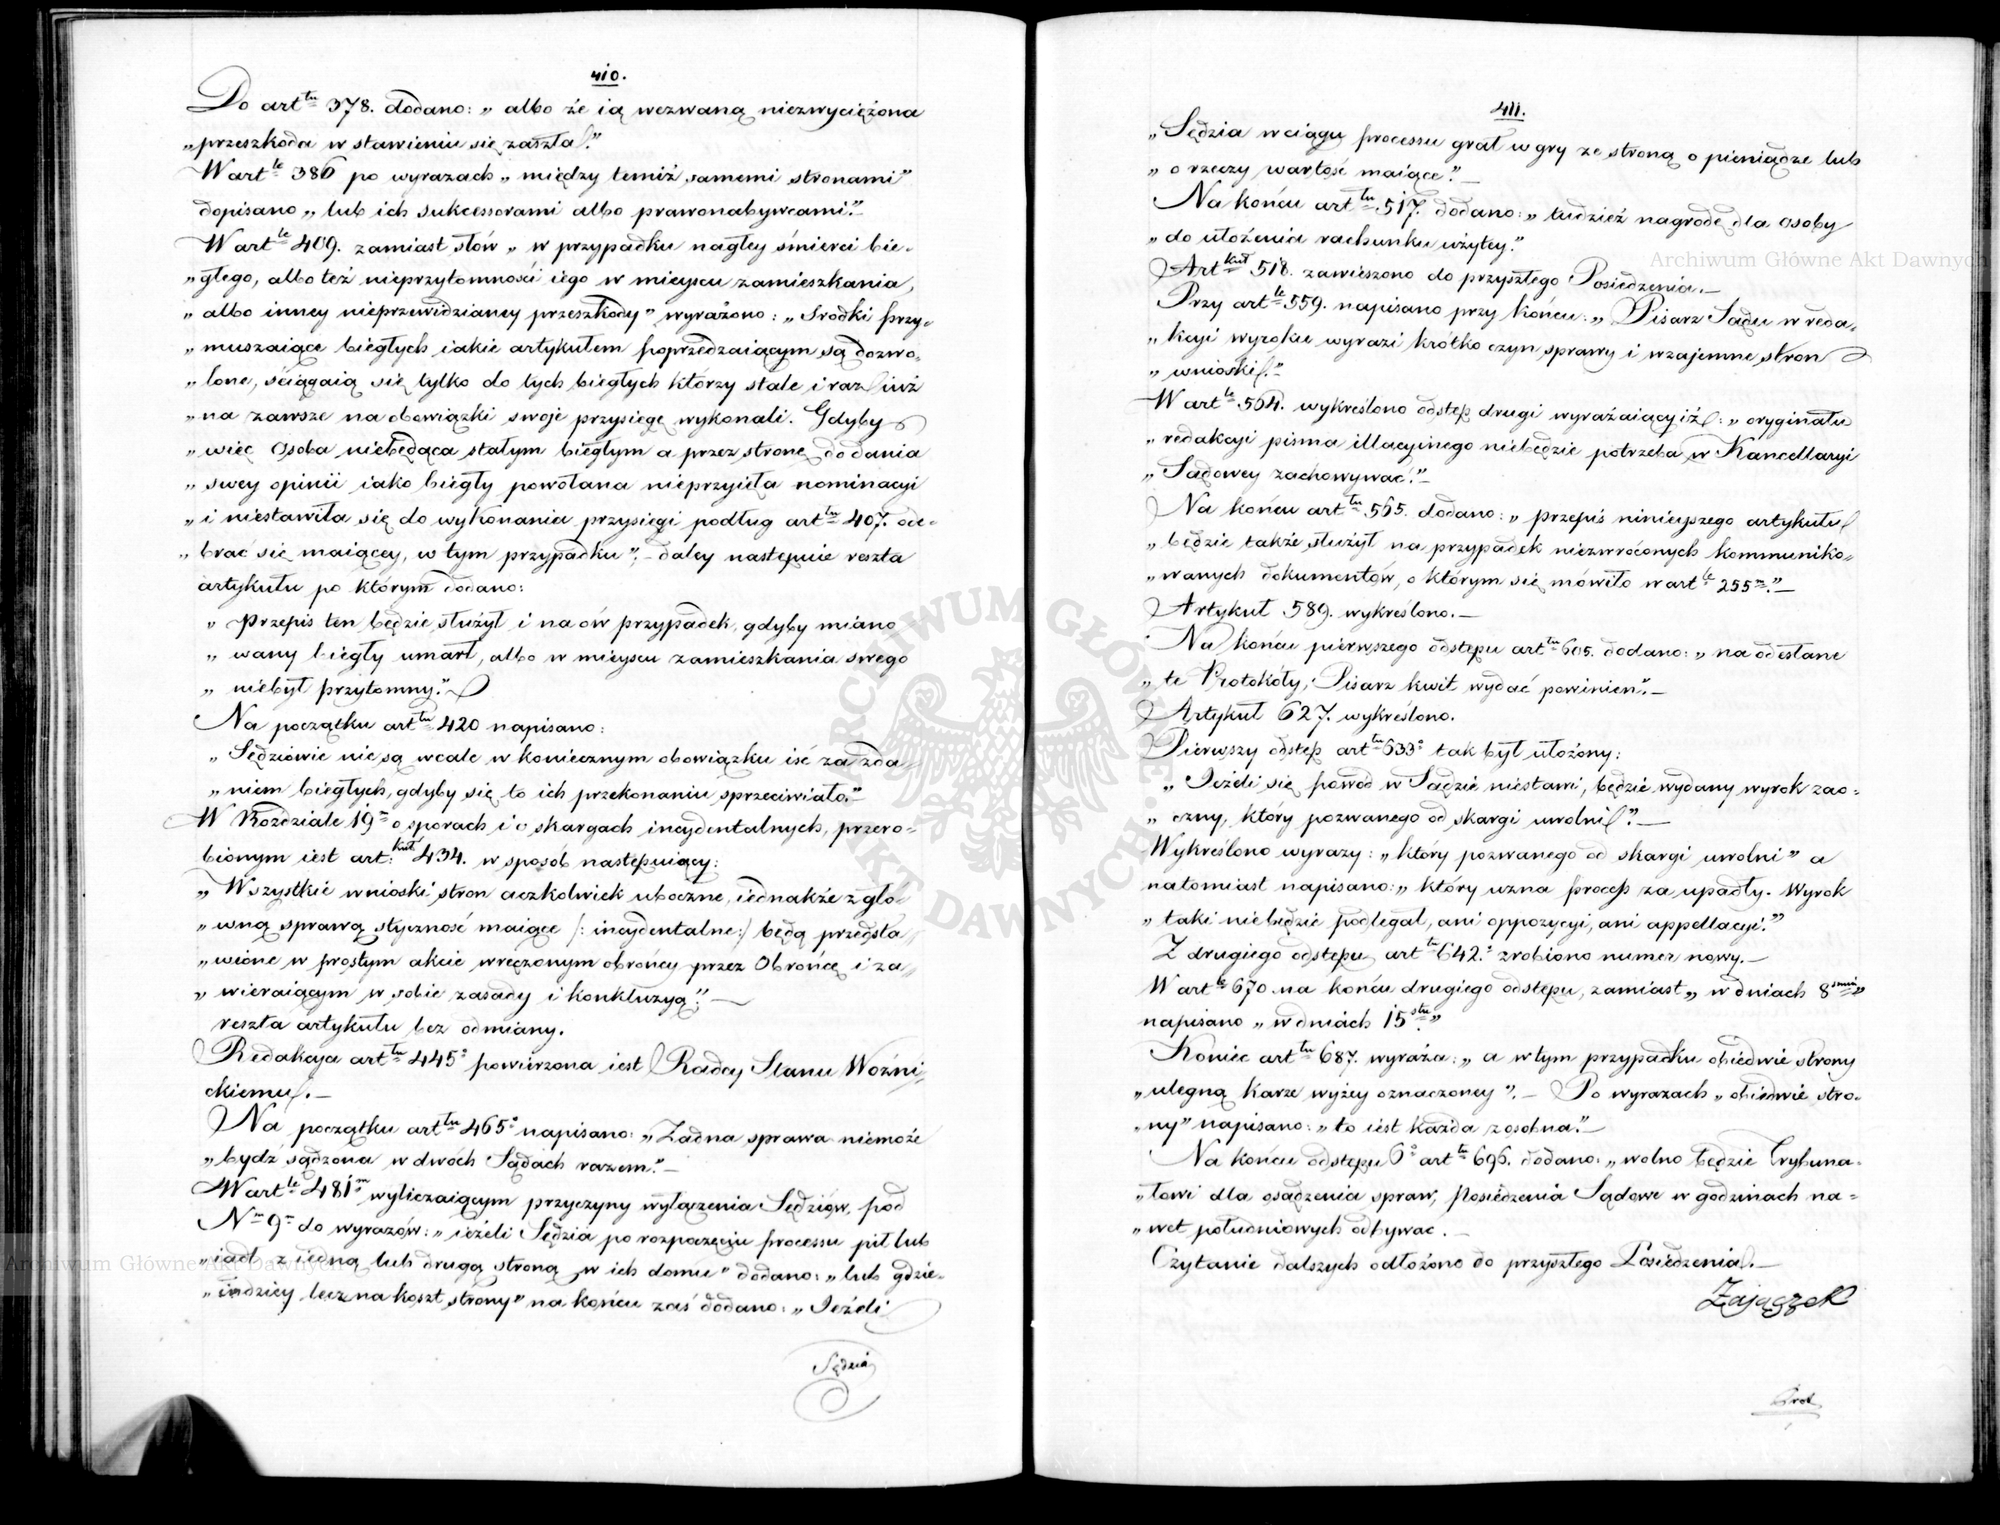 410.
Do art<sup>tu</sup> 378. dodano: „ albo że ią wezwaną niezwyciężona
„przeszkoda w stawieniu się zaszła."
W art<sup>le</sup> 386 po wyrazach „ między temiż samemi stronami"
dopisano „ lub ich sukcessorami albo prawonabywcami."
W art<sup>le</sup> 409. zamiast słów „ w przypadku nagłey śmierci bie-
„głego, albo też nieprzytomności iego w mieyscu zamieszkania,
„ albo inney nieprzewidzianey przeszkody" wyrażono: „ Srodki przy-
„ muszaiące biegłych iakie artykułem poprzedzaiącym są dozwo-
„ lone, ściągaią się tylko do tych biegłych którzy stale i raz iuż
„ na zawsze na obowiązki swoje przysięgę wykonali. Gdyby
„ więc osoba niebędąca stałym biegłym a przez stronę do dania
„ swey opinii iako biegły powołana nieprzyięła nominacyi
„ i niestawiła się do wykonania przysięgi podług art<sup>tu</sup> 407. ode-
„ brać się maiącey, w tym przypadku"; - daley następuie reszta
artykułu po którym dodano:
„ Przepis ten będzie służył i na ów przypadek, gdyby miano
„ wany biegły umarł, albo w mieyscu zamieszkania swego
„ niebył przytomny."
Na początku art<sup>tu</sup> 420 napisano:
„ Sędziowie nie są wcale w koniecznym obowiązku iść za zda-
„ niem biegłych, gdyby się to ich przekonaniu sprzeciwiało."
W Rozdziale 19<sup>m</sup> o sporach i o skargach incydentalnych, przero-
bionym iest art:<sup>kuł</sup> 434. w sposób następuiący:
„ Wszystkie wnioski stron aczkolwiek uboczne, iednakże z głó-
„ wną sprawą styczność maiące /: incydentalne:/ będą przedsta
„ wione w prostym akcie wręczonym obrońcy przez Obrońcę i za-
„ wieraiącym w sobie zasady i konkluzyą"; —
reszta artykułu bez odmiany.
Redakcya art<sup>tu</sup> 445° powierzona iest Radcy Stanu Woźni-
ckiemu. —
Na początku art<sup>tu</sup> 465° napisano: „ Żadna sprawa niemoże
„ bydź sądzona w dwóch Sądach razem." —
W art<sup>le</sup> 481<sup>m</sup> wyliczaiącym przyczyny wyłączenia Sędziów, pod
N<sup>m</sup> 9<sup>m</sup> do wyrazów: „ ieżeli Sędzia po rozpoczęciu processu pił lub
„ iadł z iedną lub drugą stroną w ich domu" dodano: „ lub gdzie-
„ indziey lecz na koszt strony" na końcu zaś dodano: „ Jeżeli
Sędzia
411.
„ Sędzia w ciągu processu grał w gry ze stroną o pieniądze lub
„ o rzeczy wartość maiące." —
Na końcu art<sup>tu</sup> 517. dodano: „ tudzież nagrodę dla osoby
„ do ułożenia rachunku użytey."
Art<sup>kuł</sup> 518. zawieszono do przyszłego Posiedzenia. —
Przy art<sup>le</sup> 559. napisano przy końcu: „ Pisarz Sądu w reda-
„ kcyi wyroku wyrazi krótko czyn sprawy i wzajemne stron
„ wnioski."
W art<sup>le</sup> 564. wykreślono odstęp drugi wyrażaiący iż: „ oryginału
„ redakcyi pisma illacyinego niebędzie potrzeba w Kancellaryi
„ Sądowey zachowywać." —
Na końcu art<sup>tu</sup> 565. dodano: „ przepis ninieyszego artykułu
„ będzie także służył na przypadek niezwróconych kommuniko-
„ wanych dokumentów, o którym się mówiło w art<sup>le</sup> 255<sup>m</sup>." —
Artykuł 589. wykreślono. —
Na końcu pierwszego odstępu art<sup>tu</sup> 605. dodano: „ na odesłane
„ te Protokóły, Pisarz kwit wydać powinien". —
Artykuł 627. wykreślono.
Pierwszy odstęp art<sup>tu</sup> 633° tak był ułożony:
„ Jeżeli się powód w Sądzie niestawi, będzie wydany wyrok zao-
„ czny, który pozwanego od skargi uwolni". —
Wykreślono wyrazy: „ który pozwanego od skargi uwolni" a
natomiast napisano: „ który uzna process za upadły. Wyrok
„ taki nie będzie podlegał, ani oppozycyi, ani appellacyi."
Z drugiego odstępu art<sup>tu</sup> 642.° zrobiono numer nowy. —
W art<sup>le</sup> 670 na końcu drugiego odstępu, zamiast „ w dniach 8<sup>smiu</sup> "
napisano „ w dniach 15<sup>stu</sup>."
Koniec art<sup>tu</sup> 687. wyraża: „ a w tym przypadku obiedwie strony
„ ulegną karze wyżey oznaczoney". — Po wyrazach „ obiedwie stro-
„ ny" napisano: „ to iest każda z osobna." —
Na końcu odstępu 6° art<sup>le</sup> 696. dodano: „ wolno będzie Trybuna-
„ łowi dla osądzenia spraw, posiedzenia Sądowe w godzinach na-
„ wet południowych odbywać. —
Czytanie dalszych odłożono do przyszłego Posiedzenia. —
Zajączek
Archiwum Główne Akt Dawnych
Archiwum Główne Akt Dawnych
ARCHIWUM GŁÓWNE AKT DAWNYCH